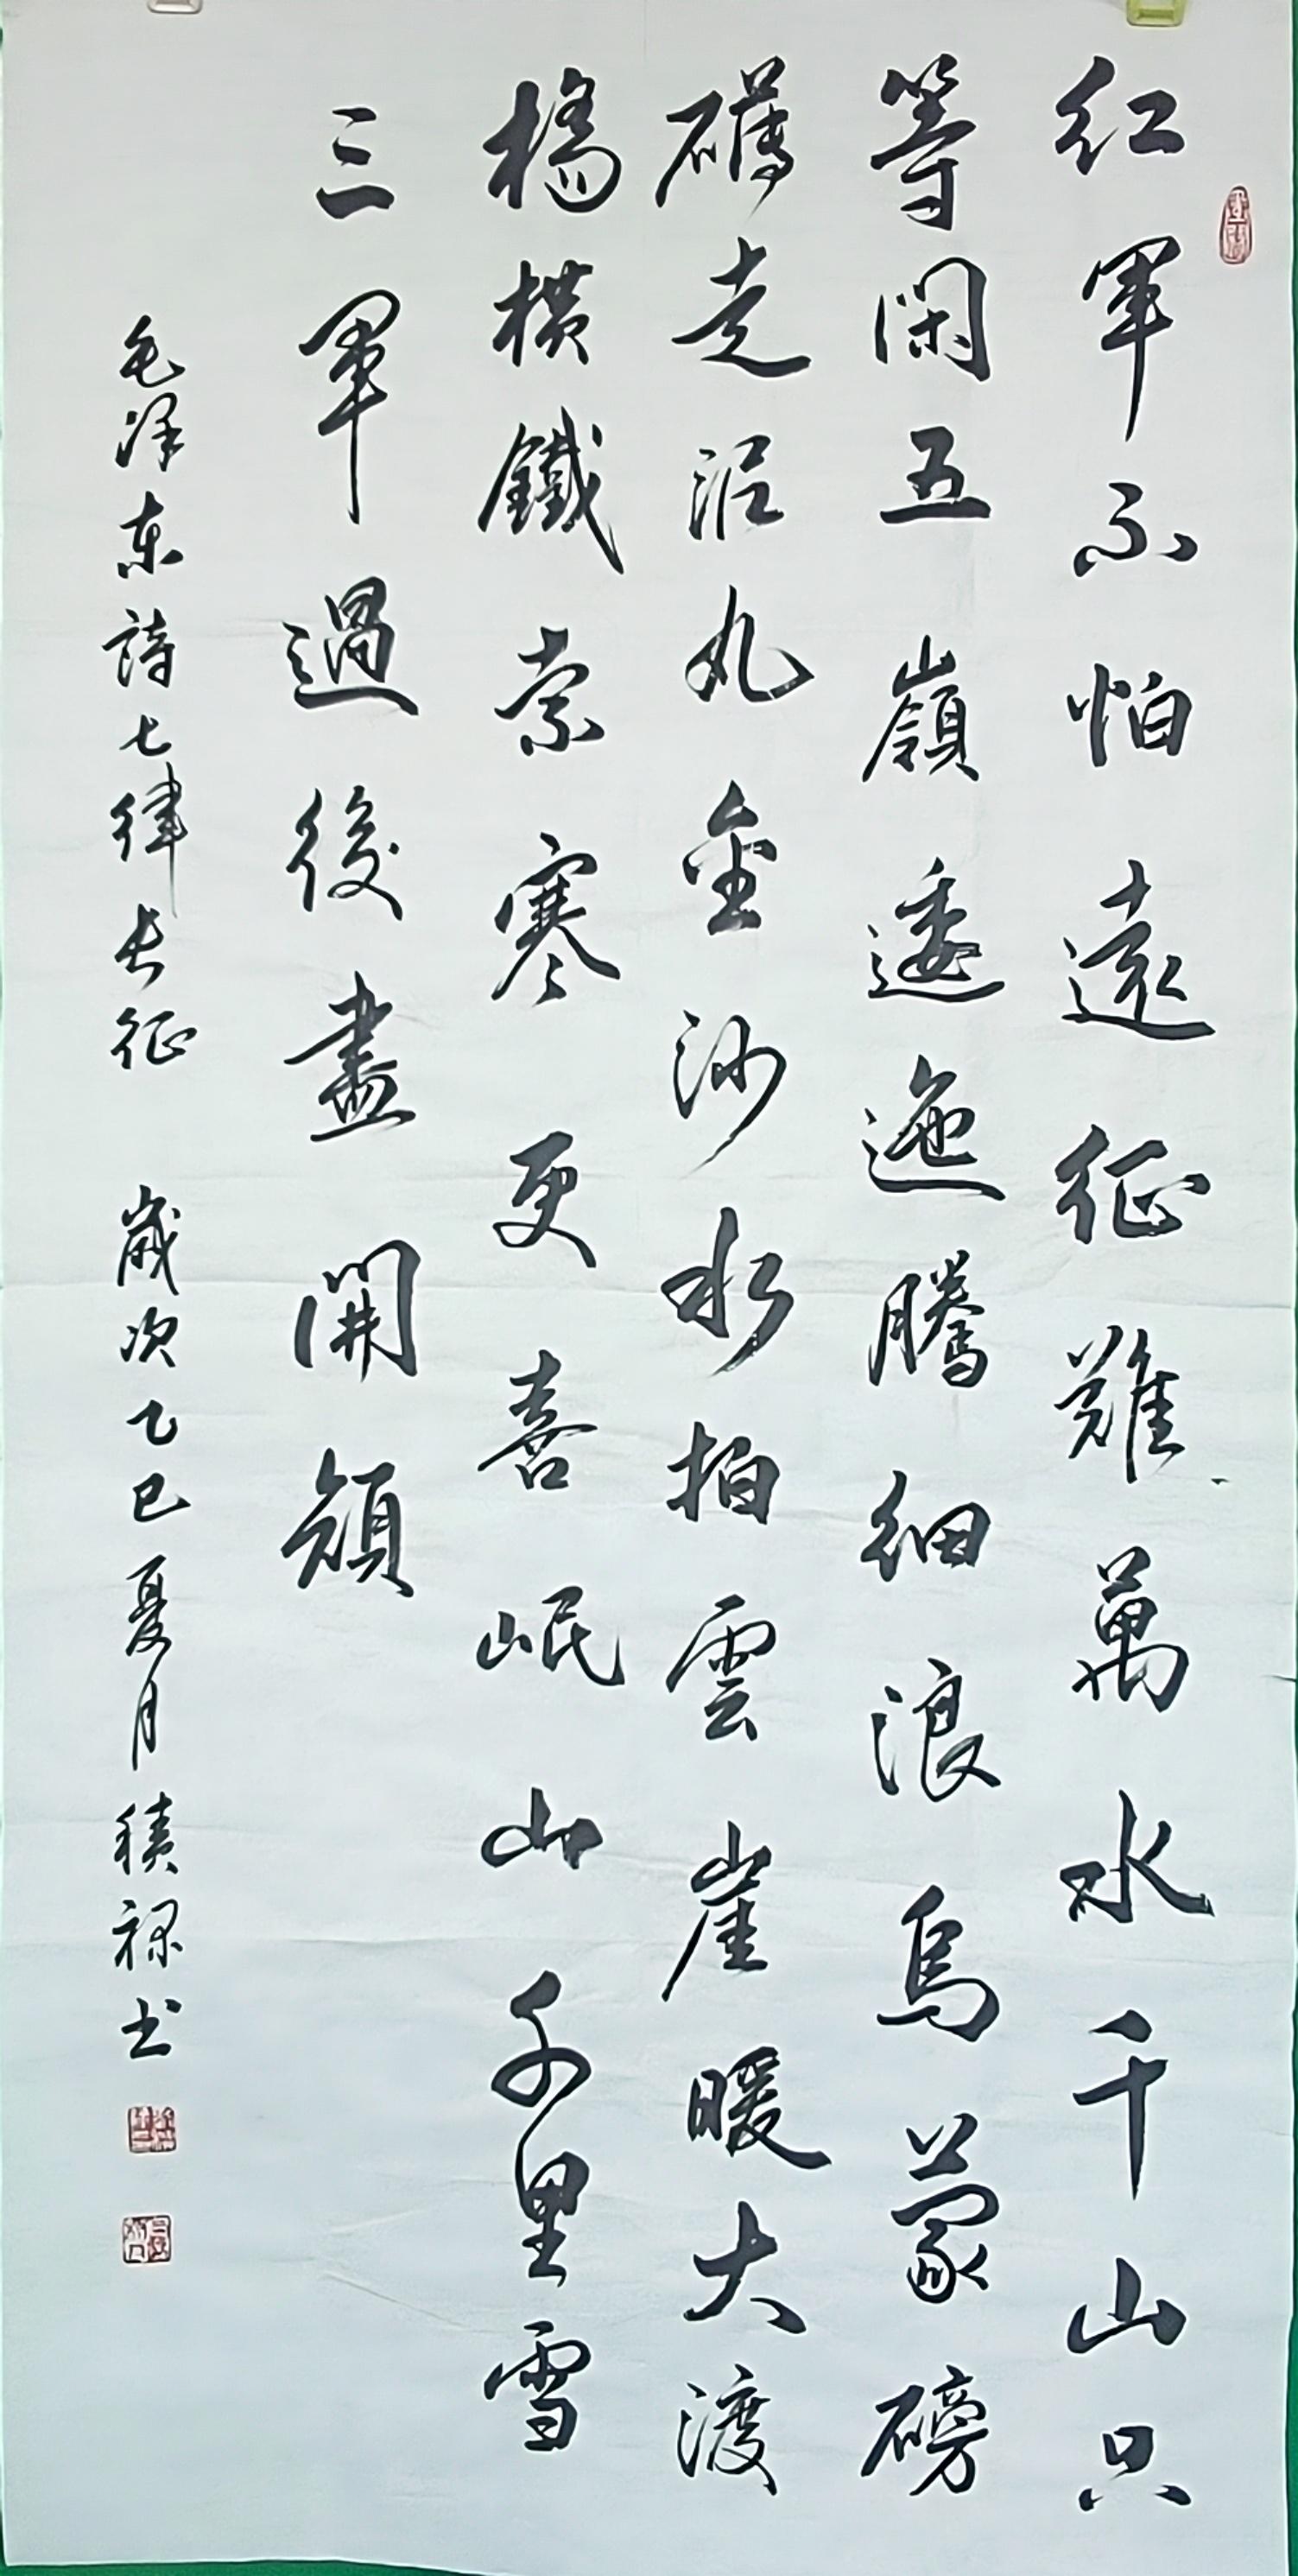 紅軍不怕遠征難萬水千山只
等閑五嶺逶迤騰細浪烏蒙磅
礴走泥丸金沙水拍雲崖暖大渡
橋橫鐵索寒更喜岷山千里雪
三軍過後盡開顏
毛澤東詩七律長征 歲次乙巳夏月積祿书